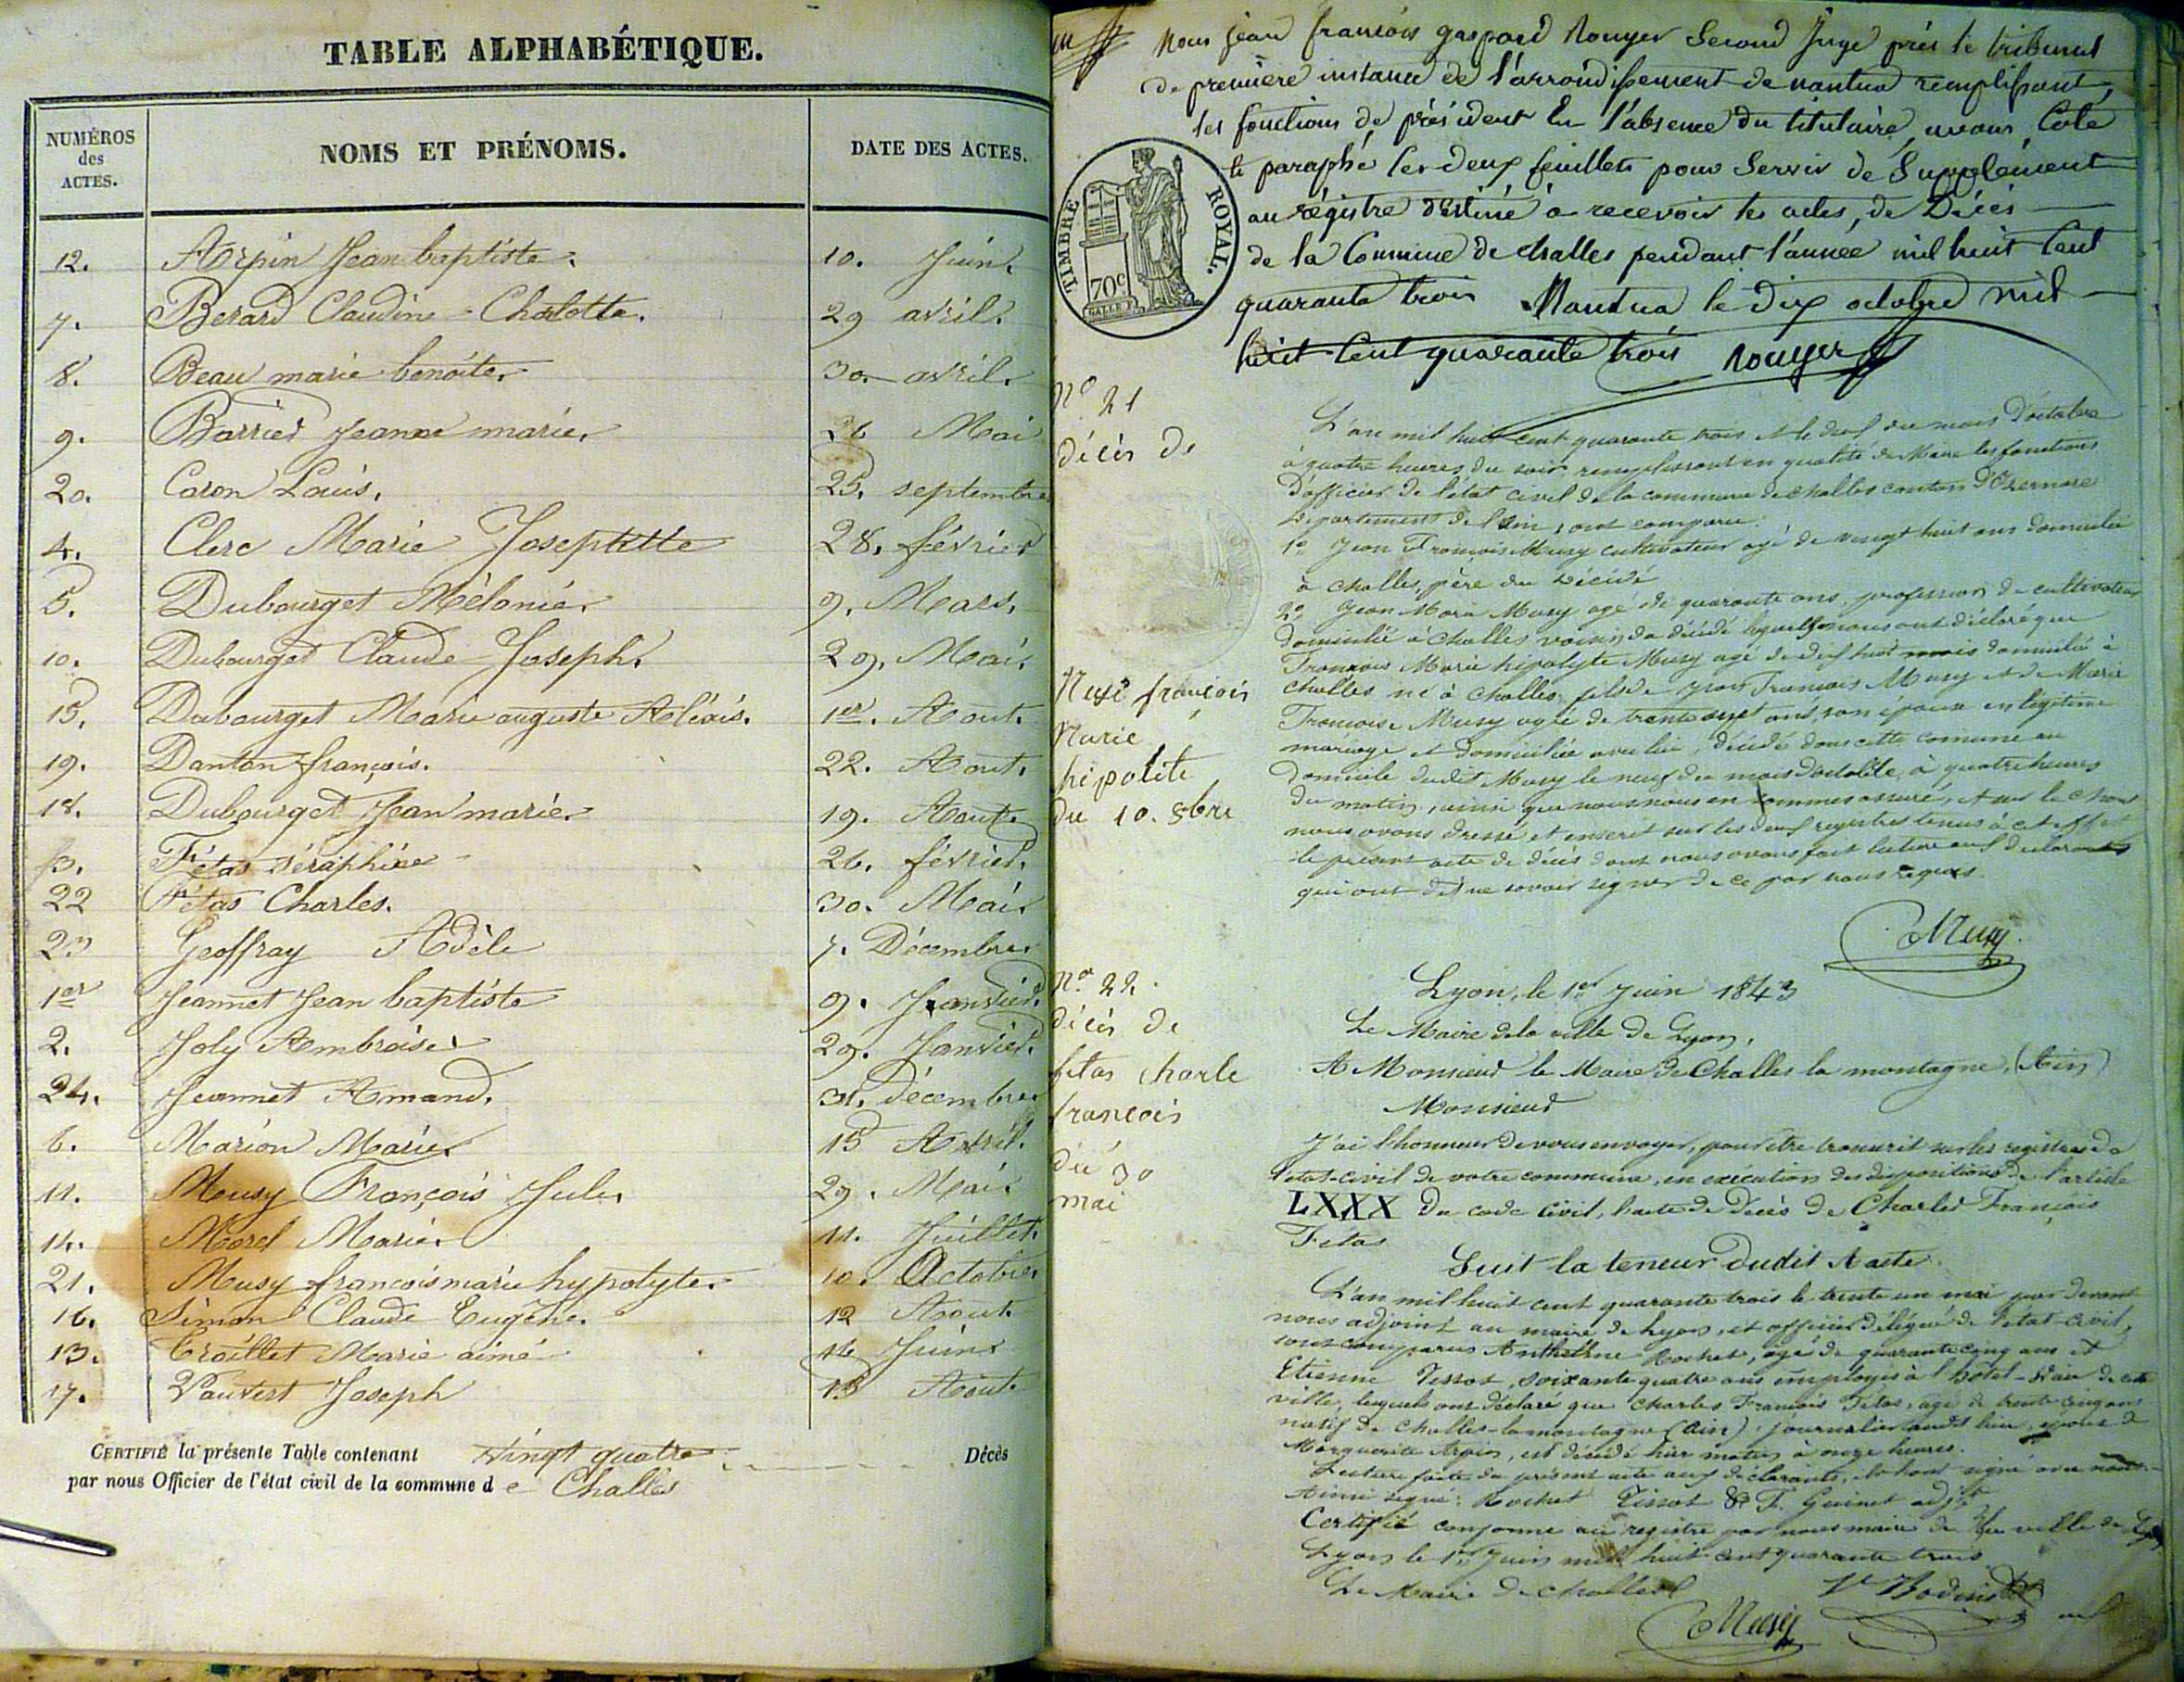 TABLE ALPHABÉTIQUE.
NUMÉROS des ACTES.
NOMS ET PRÉNOMS.
DATE DES ACTES.
12. Arpin Jean baptiste. 10. Juin.
7. Berard Claudine - Charlotte. 29 avril.
8. Beau marie benoite. 30 avril.
9. Barrier Jeanne marie. 26 Mai
20. Caron Louis. 25. septembre
4. Clerc Marie Josephtte 28. février
5. Dubourget Mélanie. 9. Mars.
10. Dubourget Claude Joseph. 29. Mai.
15. Dubourget Marie auguste Aléxis. 1er. Aout.
19. Danton françois. 22. Aout.
18. Dubourget Jean marie. 19. Aout
3. Fétas séraphine 26. février.
22 Fétas Charles. 30. Mai.
23 Geoffray Adèle 7. Décembre.
1er Jeannet Jean baptiste 9. Janvier.
2. Joly Ambroise. 29. Janvier.
24. Jeannet Amand. 31. Décembre
6. Marion Marie. 15 Avril.
11. Musy François Jule. 29. Mai.
14. Morel Marie. 11. Juillet.
21. Musy francois marie hypolyte. 10. Octobre.
16. Simon Claude Eugène. 12 Aout.
13. Croillet Marie aimé 14 Juin.
17. Vauvert Joseph 15 Aout.
CERTIFIÉ la présente Table contenant vingt quatre Décès
par nous Officier de l'état civil de la commune de Challes
Nous jean francois gaspard Rouyer Second Juge près le tribunal
de première instance de l'arrondissement de nantua remplissant
les fonctions de président En l'absence du titulaire, avons Coté
et paraphé les deux feuillets pour Servir de Supplément
au régistre destiné à recevoir les actes, de Décès
de la Commune de challes pendant l'année mil huit Cent
quarante trois Nantua le dix octobre mil
huit Cent quarante trois Rouyer
TIMBRE ROYAL.
70c
No 21
décès de
Musi françois
Marie
hipolite
du 10. 8bre
L'an mil huit cent quarante trois et le dix du mois d'octobre
à quatre heures du soir remplissant en qualité de Maire les fonctions
d'officier de l'état civil de la commune de challes canton d'Izernore
Département de l'ain, ont comparu.
1o Jean François Musy cultivateur agé de vingt huit ans domicilié
à challes, père du décédé
2o Jean Marie Musy agé de quarante ans, profession de cultivateur
domicilié à Challes voisin du décédé lesquels nous ont déclaré que
François Marie hipolyte Musy agé de dix huit mois domicilié à
challes né à challes, fils de Jean François Musy et de Marie
Françoise Musy agée de trente sept ans, son épouse en légitime
mariage et domiciliée avec lui, décédé dans cette comune au
domicile dudit Musy le neuf du mois d'octobre, à quatre heures
du matin, ainsi que nous nous en sommes assuré, et sur le champ
nous avons dressé et inscrit sur les deux registres tenus à cet effet
le présent acte de décès dont nous avons fait lecture aux déclarants
qui ont dit ne savoir signer de ce par nous requis.
Musy
No 22.
décès de
fetas charle
francois
du 30
mai
Lyon, le 1er Juin 1843
Le Maire de la ville de Lyon,
A Monsieur le Maire de Challes la montagne, (Ain)
Monsieur
J'ai l'honneur de vous envoyer, pour être transcrit sur les registres de
l'état-civil de votre commune, en exécution des dispositions de l'article
LXXX du code civil, l'acte de Décès de Charles François
Fetas
Suit la teneur dudit Acte.
L'an mil huit cent quarante trois le trente un mai par devant
nous adjoint au maire de Lyon, et officier délégué de l'état-civil,
sont comparus Anthelme Rochet, agé de quarante cinq ans et
Etienne Tissot, soixante quatre ans employés à l'hôtel-Dieu de cette
ville, lesquels ont déclaré que Charles François Fetas, agé de trente cinq ans
natif de Challes-la montagne (Ain), journalier audit lieu, époux de
Marguerite Arpin, est décédé hier matin à onze heures.
Lecture faite du présent acte aux déclarants, ils l'ont signé avec nous
Ainsi signé: Rochet Tissot & F. Guinet adjt
Certifié conforme au registre par nous maire de la ville de Lyon
Lyon le 1er Juin mil huit cent quarante trois
Le Maire de challes
Musy